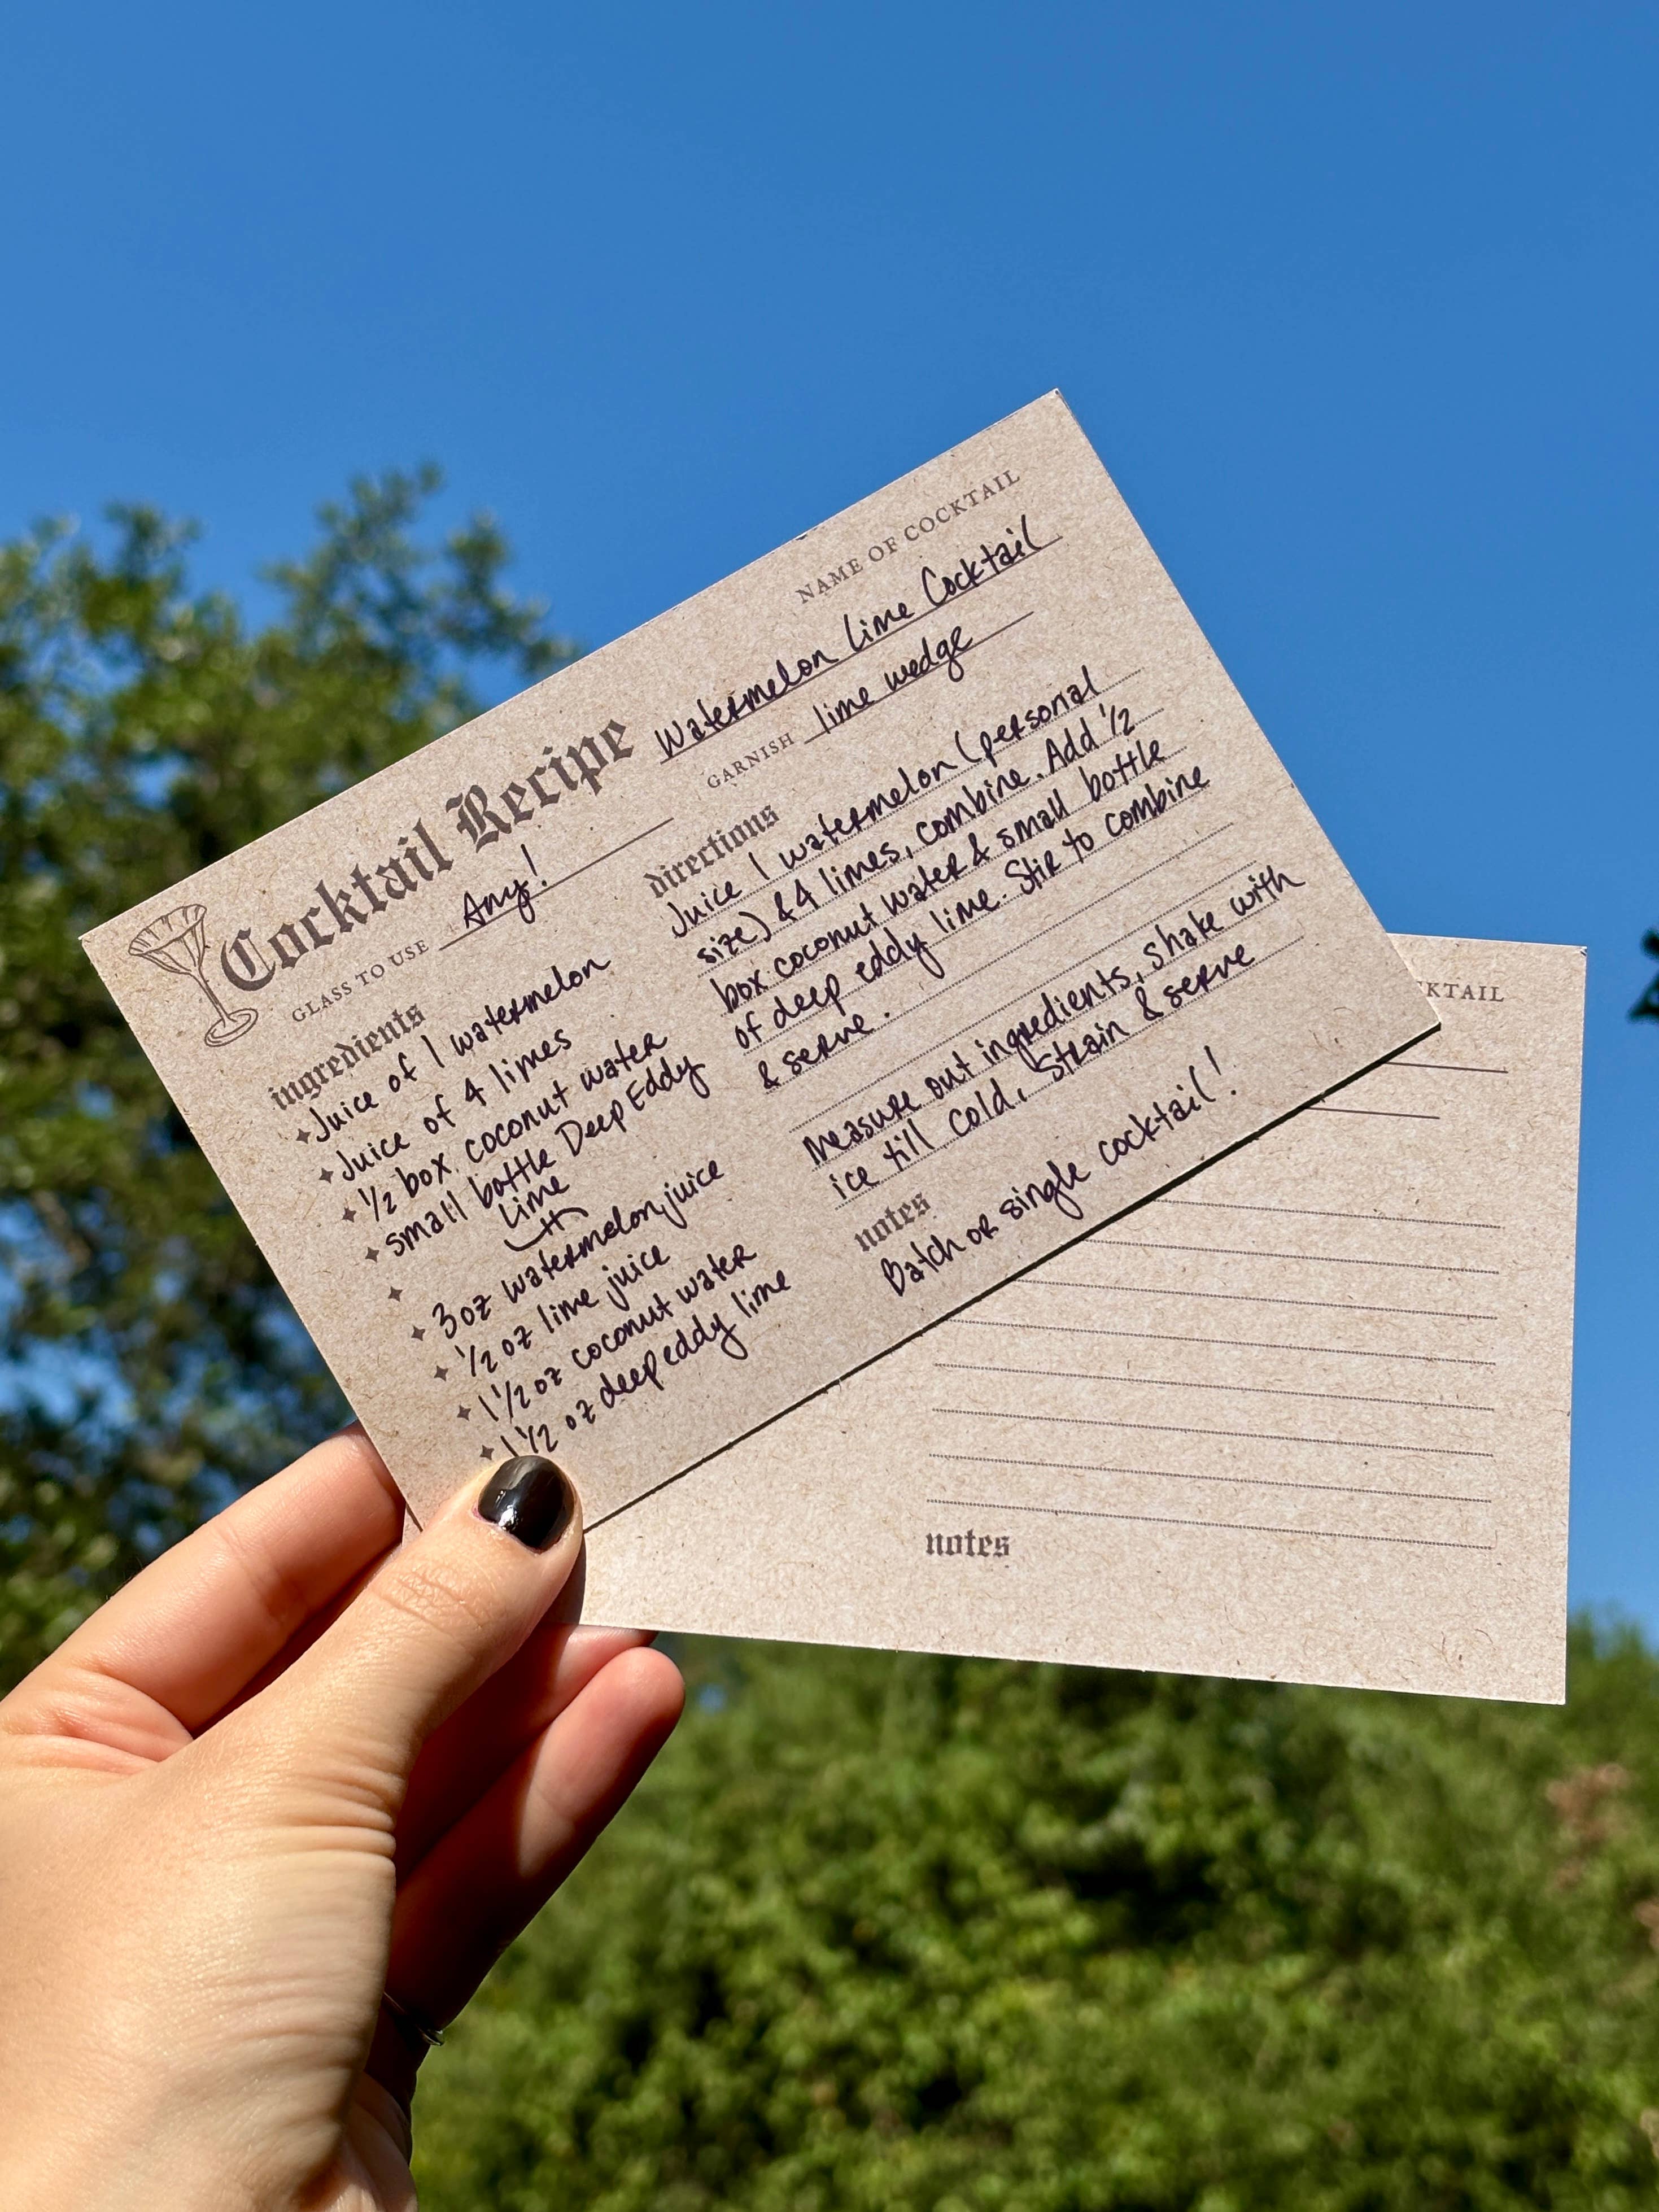 NAME OF COCKTAIL
Cocktail Recipe Watermelon Lime Cocktail
GLASS TO USE Any!
GARNISH lime wedge
ingredients
Juice of 1 watermelon
Juice of 4 limes
1/2 box coconut water
small bottle Deep Eddy
Lime
3oz watermelon juice
1/2 oz lime juice
1 1/2 oz coconut water
1 1/2 oz deep eddy lime
directions
Juice 1 watermelon (personal
size) & 4 limes, combine. Add 1/2
box coconut water & small bottle
of deep eddy lime. Stir to combine
& serve.
Measure out ingredients, shake with
ice till cold, strain & serve
notes
Batch or single cocktail!
KTAIL
notes